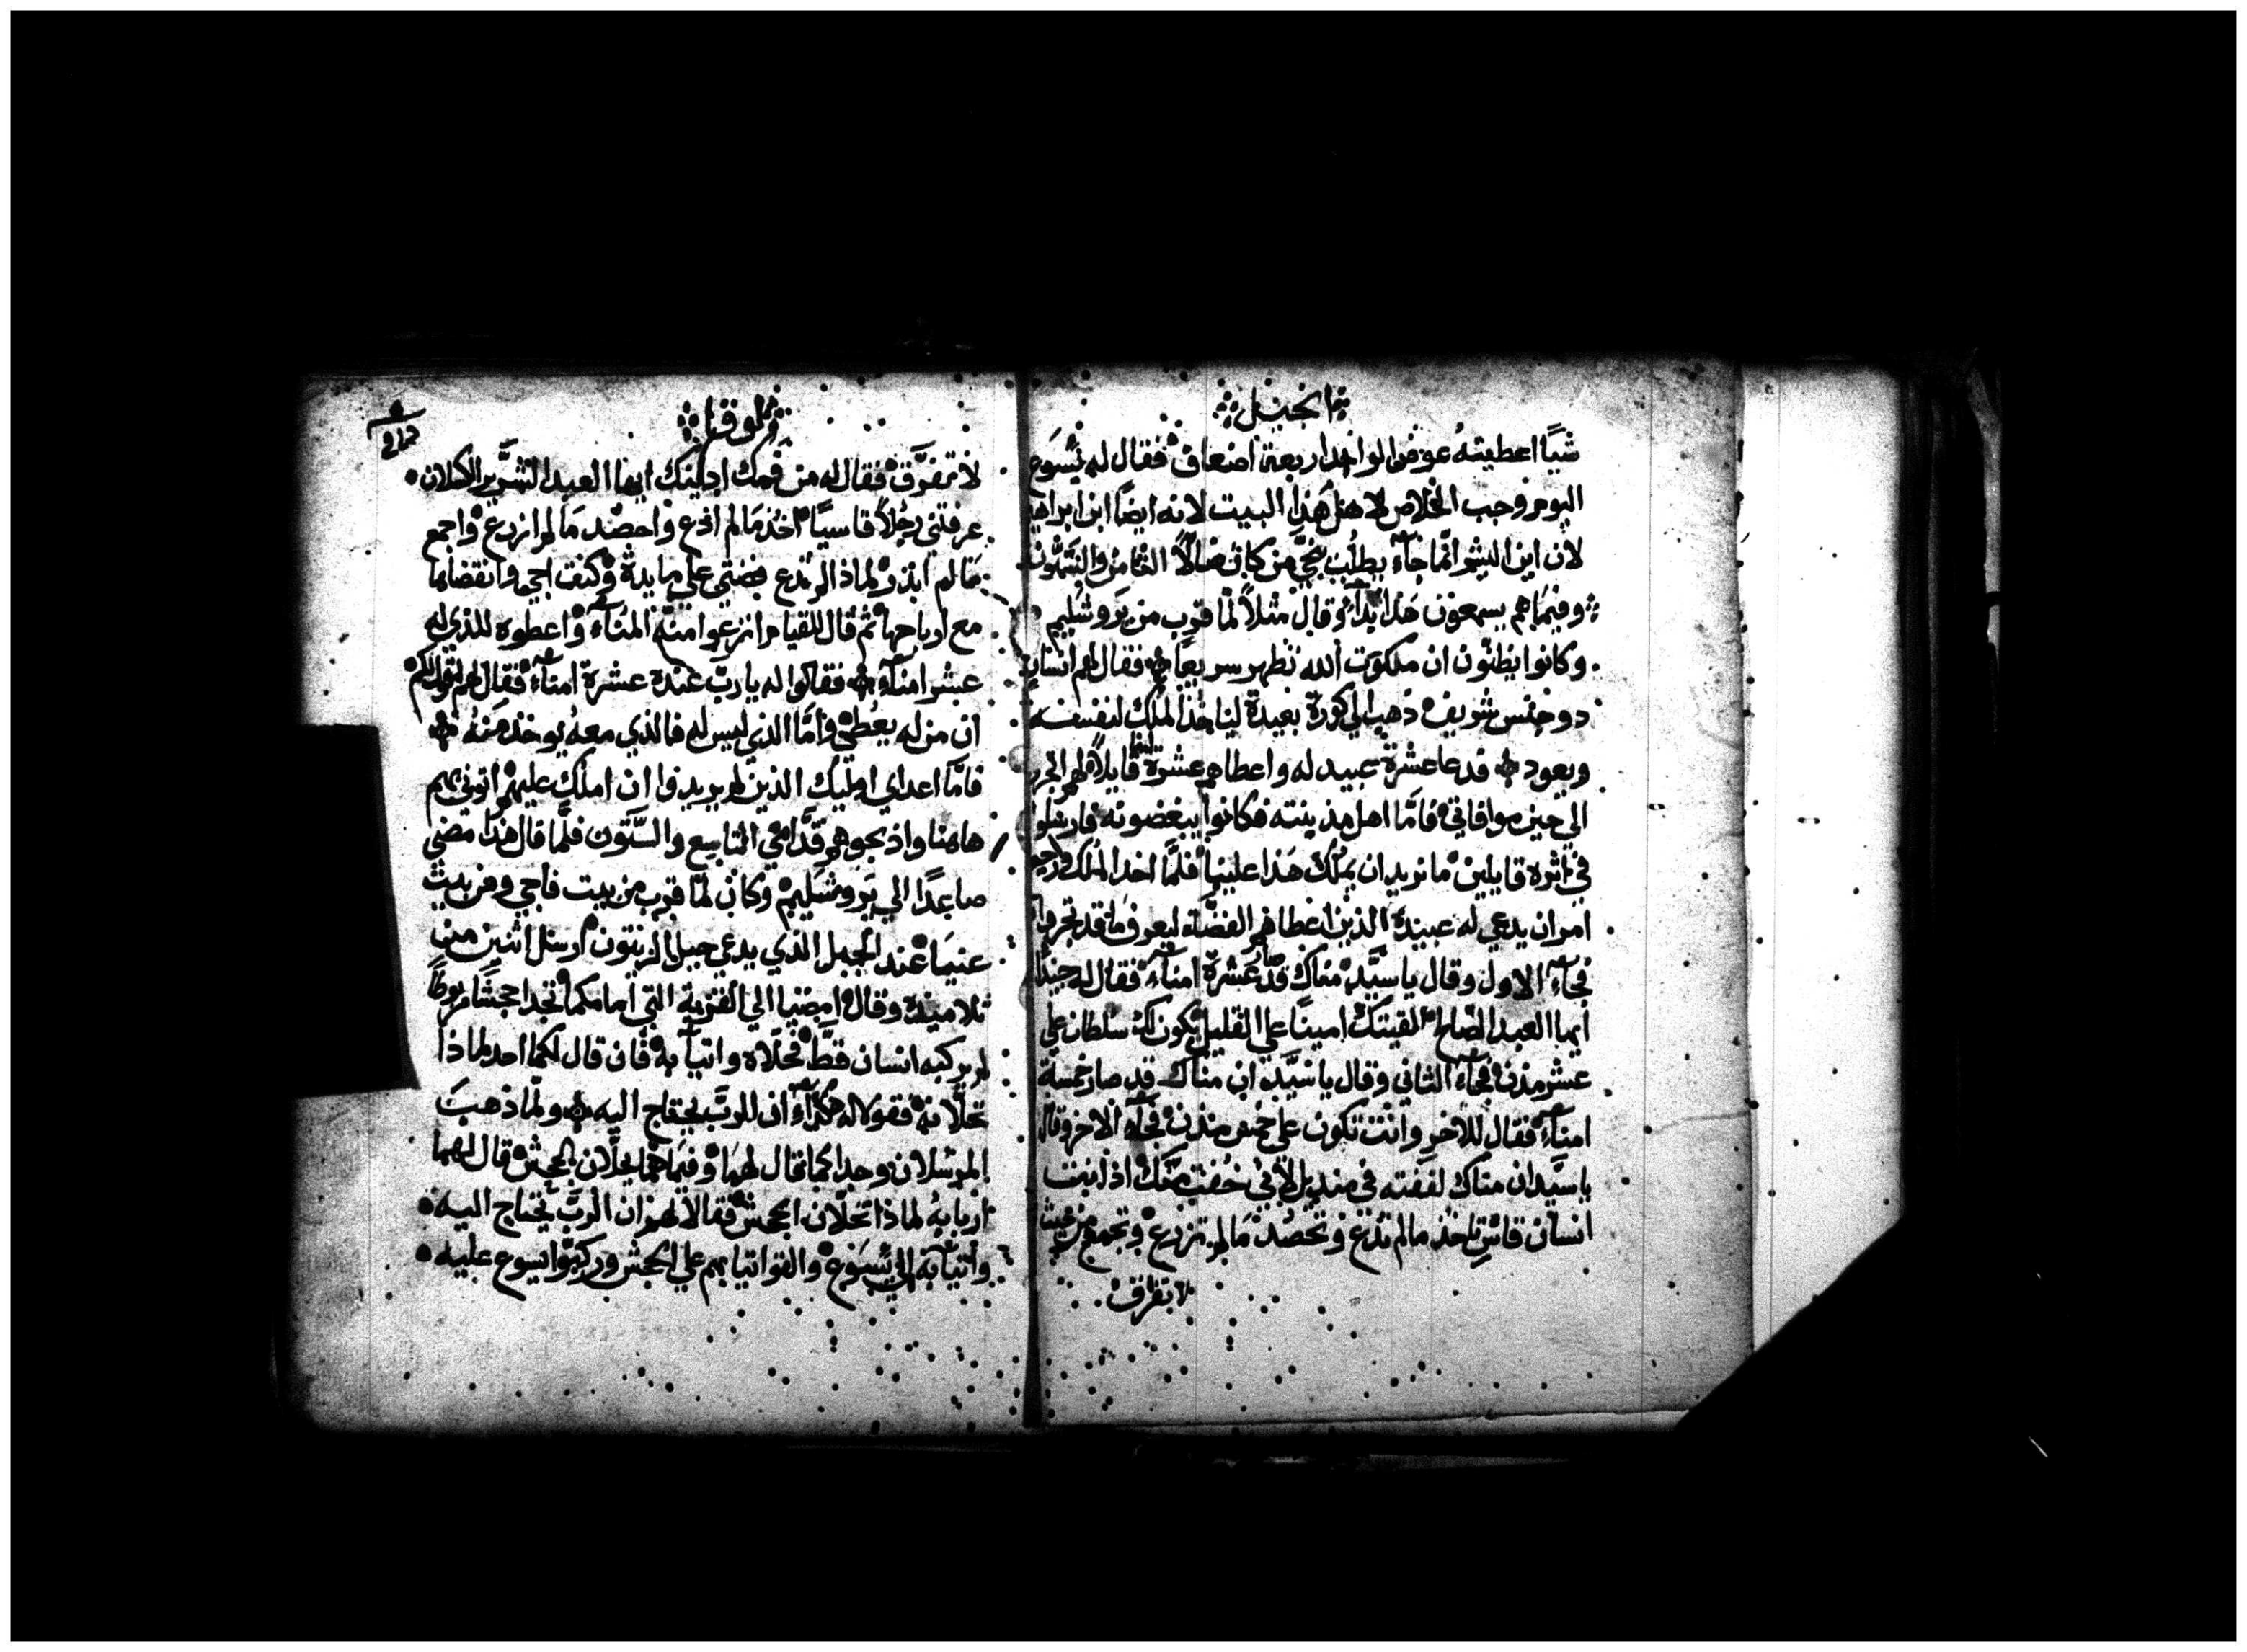 انجيل
شيًا اعطيته عوض الواحد اربعة اضعاف فقال له يسوع
اليوم وجب الخلاص لاهل هذا البيت لانه ايضًا ابن ابراهيم
لان ابن البشر انما جاء يطلب ينجي من كان ضالًا الثامن والستون
وفيما هم يسمعون هذا بدا وقال مثلًا لما قرب من يروشليم
وكانوا يظنون ان ملكوت الله تظهر سريعًا فقال لهم انسان
دو جنس شريف ذهب الي كورة بعيدة لياخذ الملك لنفسه
ويعود فدعا عشرة عبيد له واعطاهم عشرة قايلًا لهم
الي حين موافاتي فامّا اهل مدينته فكانوا يبغضونه فارسلوا
في اثره قايلين ما نريد ان يملك هذا علينا فلمّا اخد الملك
امر ان يدعي له عبيده الذين اعطاهم الفضة ليعرف ما قد تجروا
فجاء الاول وقال يا سيد مناك قد صار عشرة امناء فقال له جيدًا
ايها العبد الصالح القيتك امينًا علي القليل تكون لك سلطان علي
عشر مدن فجاء الثاني وقال يا سيد ان مناك قد صار خمسة
امناء فقال للاخر وانت تكون علي خمس مدن فجاء الاخر وقال
يا سيد ان مناك لففته في منديل لاني خفت منك اذ انت
انسان قاس تاخذ ما لم تدع وتحصد ما لم تزرع وتجمع من حيث
لا تفرق
لوقا
لا تفرّق فقال له من فمك ادينك ايها العبد الشرير الكسلان
عرفتني رجلًا قاسيًا اخذ ما لم ادع واحصد ما لم ازرع واجمع
ما لم ابذر لماذا لم تدع فضتي علي مايدة وكنت اجي وانقضاها
مع ارباحها ثم قال للقيام انزعوا منه المناء واعطوه للذي له
عشر امناء فقالوا له يا رب عنده عشرة امناء فقال لهم اقول لكم
ان من له يعطي وامّا الذي ليس له فالذي معه يوخذ منه
فامّا اعداي اوليك الذين لم يريدوا ان املك عليهم اتوني بهم
هاهنا واذبحوهم قدّامي التاسع والستون فلمّا قال هذا مضي
صاعدًا الي يروشليم وكان لمّا قرب من بيت فاجي ومن بيت
عنيا عند الجبل الذي يدعي جبل الزيتون ارسل اثنين من
تلاميذه وقال امضيا الي القرية التي امامكما تجدا جحشًا مربوطًا
لم يركبه انسان قط فحلاه واتيا به فان قال لكما احد لماذا
تحلانه فقولا له هكذا ان للرب يحتاج اليه ولمّا ذهب
المرسلان وجدا كما قال لهما وفيما هما يحلان الجحش قال لهما
اربابه لماذا تحلان الجحش فقالا لهم ان الرب يحتاج اليه
واتيا به الي يسوع والقوا ثيابهم علي الجحش وركبوا يسوع عليه